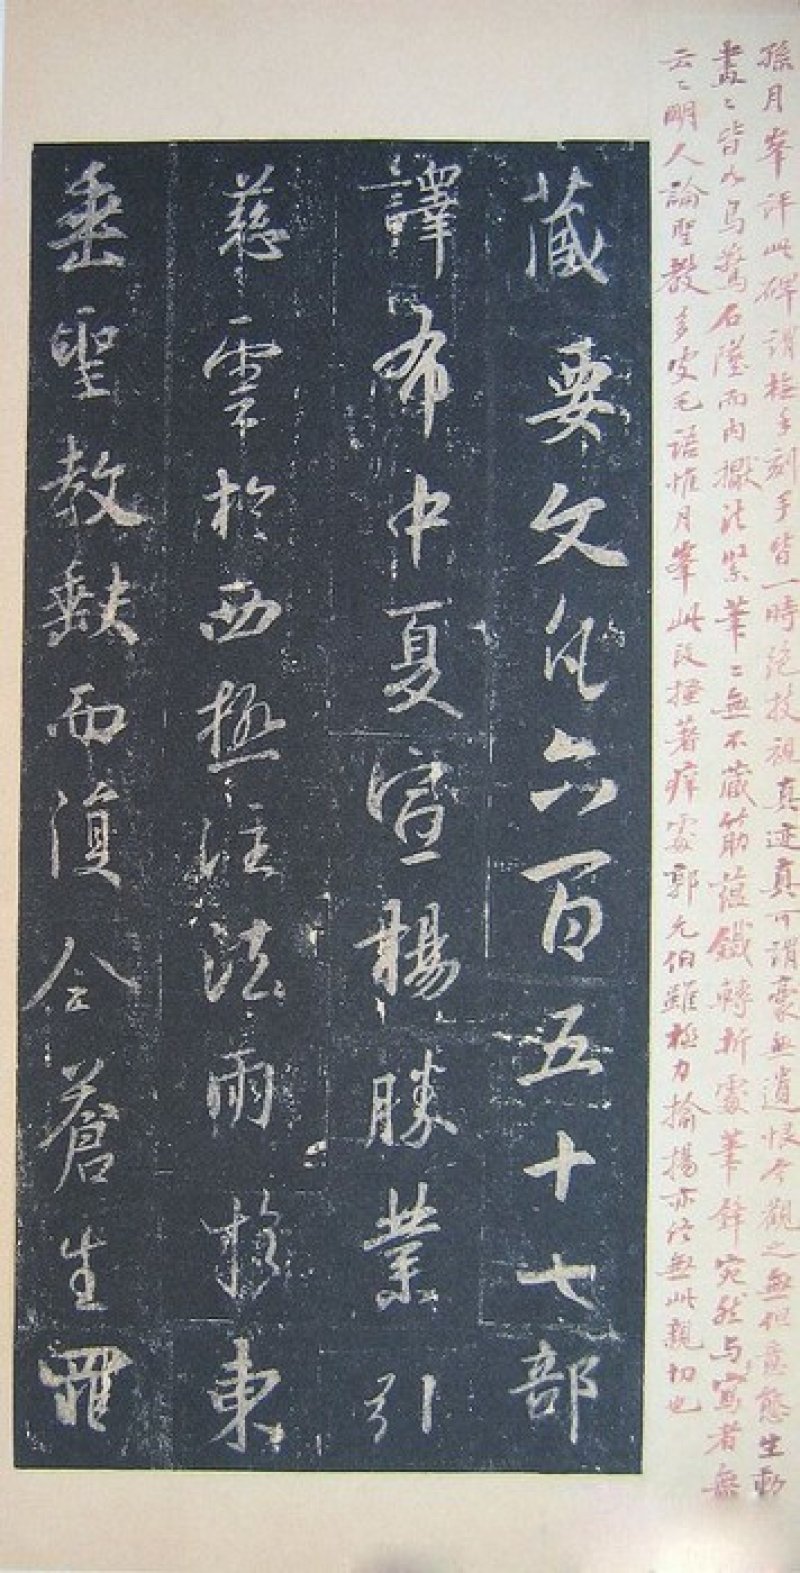 孫月峯評此碑謂樵手刻手皆一時絕技視真迹真可謂豪無遺恨今觀之無但意態生動
畫〻皆如鳥驚石墜而內擫法緊筆〻無不藏筋蘊鐵轉折處筆鋒宛然與寫者無
云〻明人論聖教多皮毛語惟月峯此段搔著癢處郭允伯雖極力揄揚亦無此親切也
藏要文凡六百五十七部
譯布中夏宣揚勝業引
慈雲於西極注法雨於東
垂聖教缺而復全蒼生罪